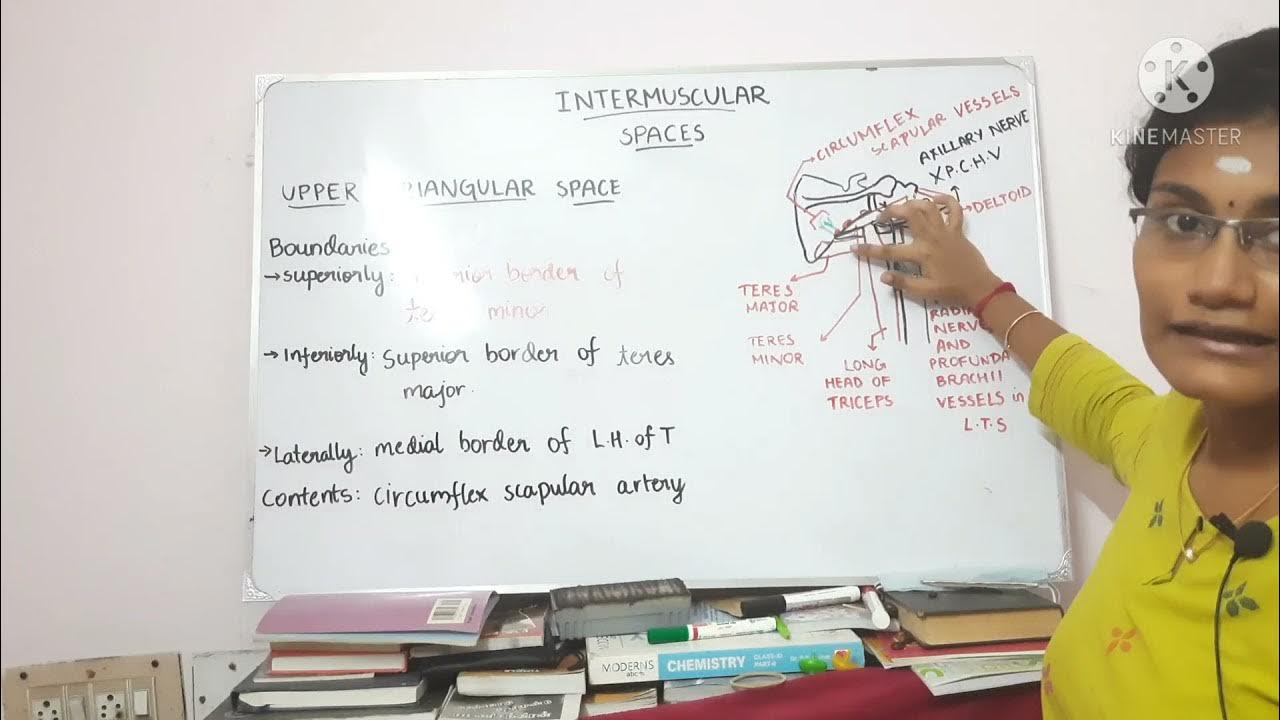 INTERMUSCULAR
SPACES
UPPER TRIANGULAR SPACE
Boundaries
→ superiorly: border of
minor
→ Inferiorly: Superior border of teres
major.
→ Laterally: medial border of L.H. of T
Contents: circumflex scapular artery
CIRCUMFLEX
SCAPULAR VESSELS
AXILLARY NERVE
X P.C.H.V
DELTOID
TERES
MAJOR
TERES
MINOR
LONG
HEAD OF
TRICEPS
NERVE
AND
PROFUNDA
BRACHII
VESSELS in
L.T.S
K
KINEMASTER
MODERNS
abc+
CHEMISTRY
CLASS-XI
PART-II